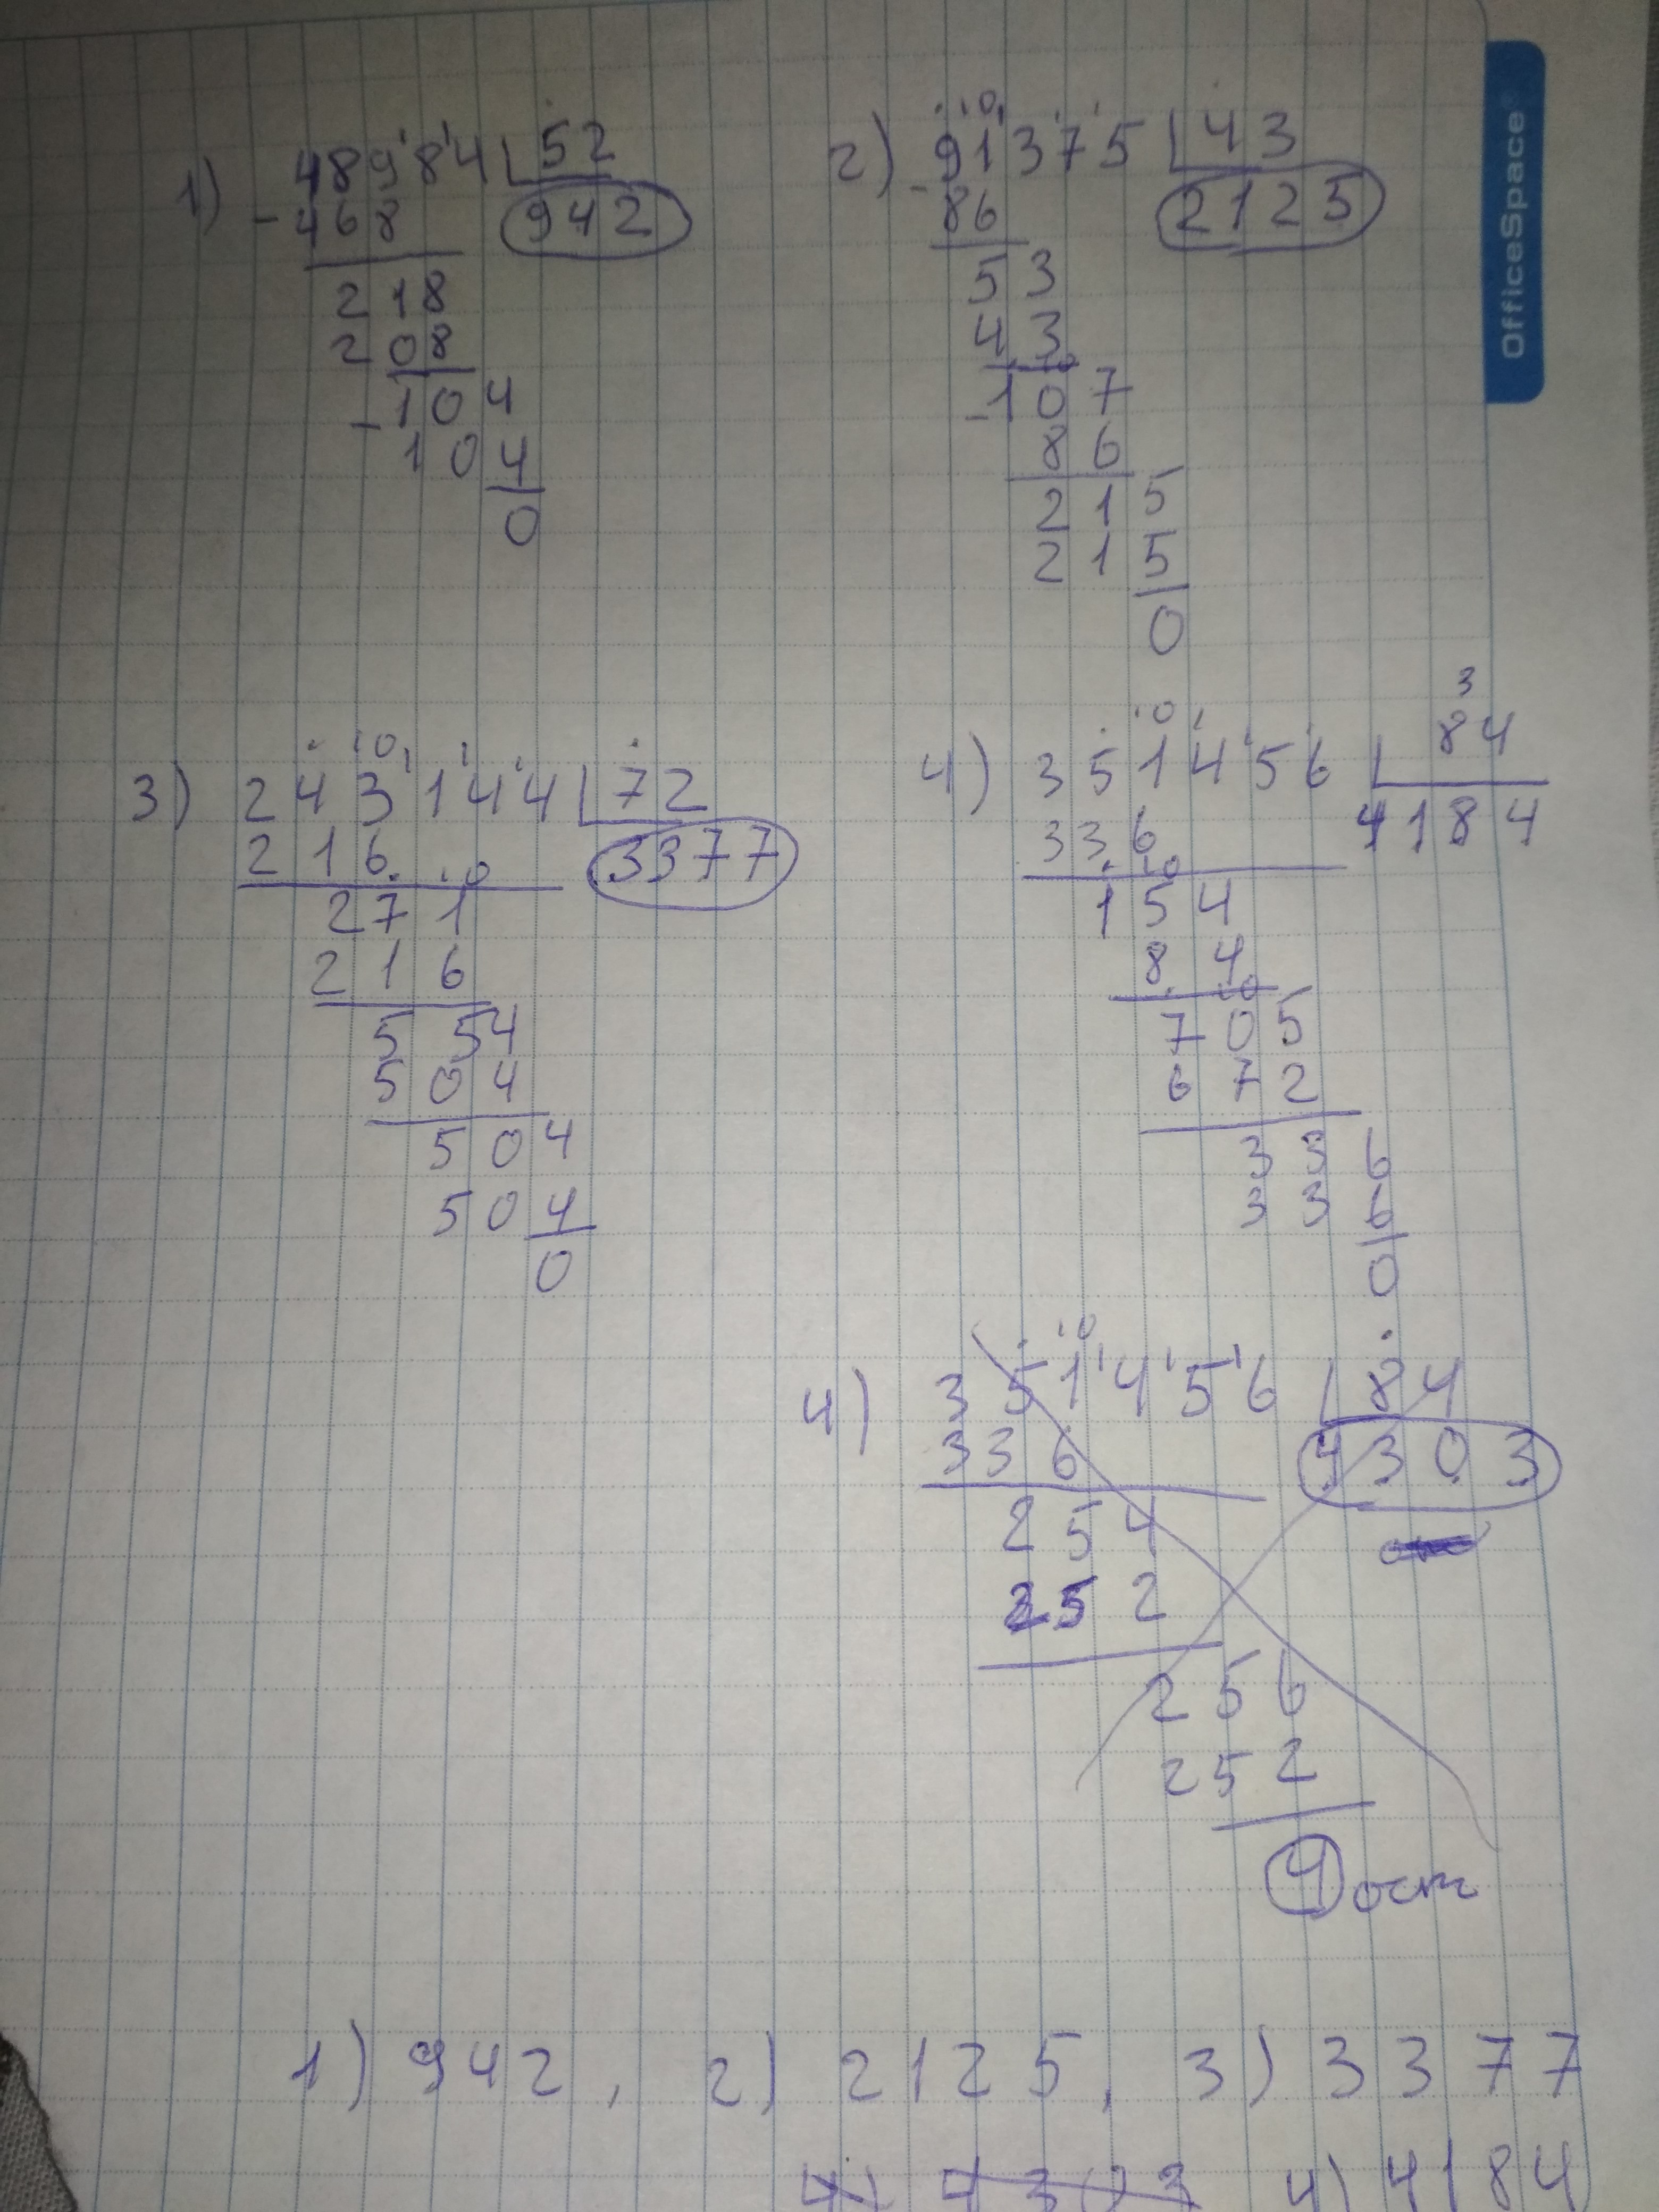 1) 48984 52
- 468 942
218
208
- 104
104
0
2) 91375 43
- 86 2125
53
43
- 107
86
215
215
0
OfficeSpace
3) 243144 72
216 3377
271
216
554
504
504
504
0
3
4) 351456 84
336 4184
154
84
705
672
336
336
0
4) 351456 84
336 4303
254
252
256
252
4 ост
1) 942, 2) 2125, 3) 3377
4) 4303 4) 4184